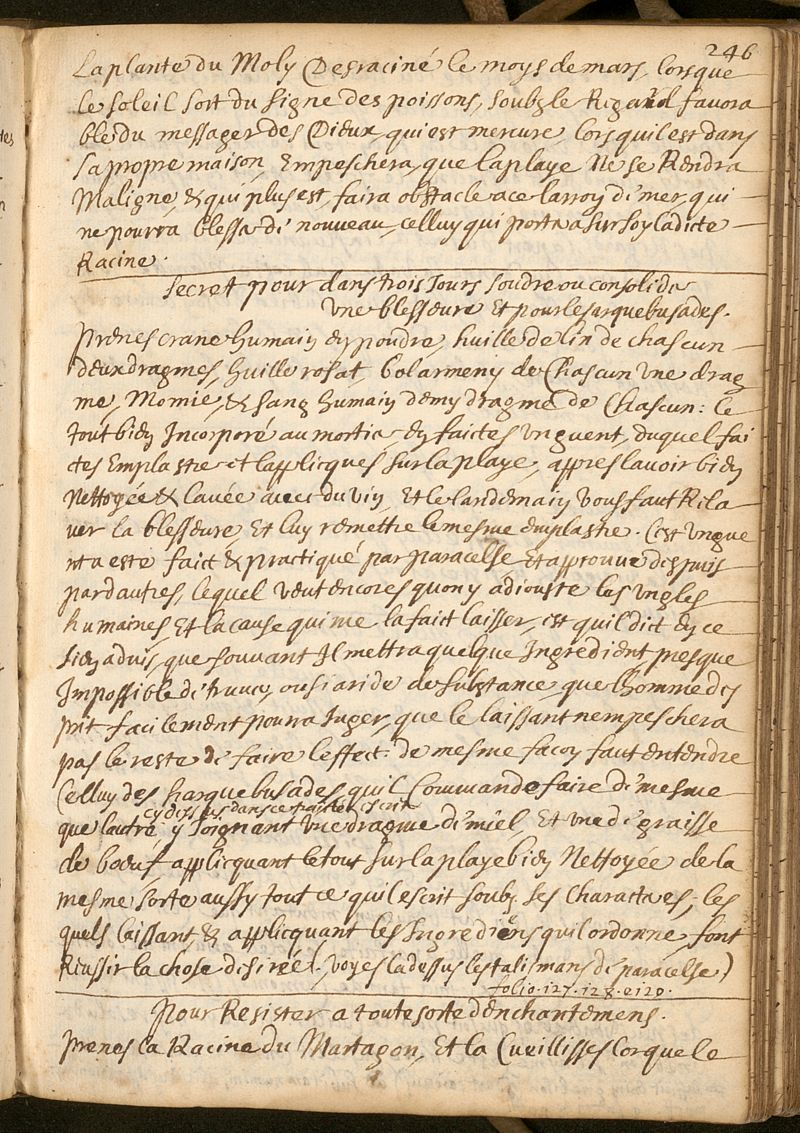 246
La plante du Moly Desraciné le moys de mars, lorsque
le soleil sort du signe des poissons, soubz le Regard favora
ble du messager des Dieux, qui est mercure, lors quil est dans
sa propre maison, Empeschera, que la playe Ne se Rendra
Maligne, & qui plus est, faira obstacle a ce larroy di mer, qui
ne pourra blesser di nouveau, celluy qui porta a sur soy ladicte
Racine.
Secret pour dans trois Jours soudre ou consolider
une blesseure Et pour les arquebusades.
Prenes crane humain en poudre, huille de lin de chascun
deux dragmes, huille rosat, bolarmeny de Chascun une drag
me, Momie, & sang humain demy dragme de Chascun: le
tout bien Incorporé au mortier en faictes unguent, duquel fai
ctes Emplastre et l'applicques sur la playe, appres lavoir bien
Nettoyée & lavée avec du vin, Et le landemain vous faut Rela
ver la blesseure, Et luy remettre le mesme emplastre. (cest ungue
nt a este faict & practiqué par paracelse Et approuvé despuis
par dautres, lequel veut encores quon y adiouste les ungles
humaines Et la cause qui me la faict laisser, est quil dict en ce
sien aduis, que souvant Il mettra quelque Ingredient presque
Impossible di trouver, ou si aride de substance, que lhomme des
prit facilement pourra Juger, que le laissant nempeschera
pas le reste di faire leffect: de mesme facon faut entendre
Celluy des harquebusades quil Commande faire di mesme
cy dessus dans ce traicté escrit
que lautre y Joignant une dragme di miel Et une di graisse
de boeuf applicquant le tout sur la playe bien Nettoyée de la
mesme sorte aussy tout ce quil escrit soubz ses Characteres, les
quels laissant, & applicquant les Ingrediens quil ordonne, font
Reussir la chose desirée. voyes la dessus les talismans di paracelse)
folio. 127. 128. e 129.
Pour Resister a toute sorte d'Enchantemens.
Prenes la Racine du Martagon, Et la Cueillisses lorque le